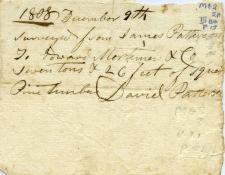 1808 December 9th
Surveyed from James Patterson
To Edward Mortimer & Co
Seven tons & 26 feet of
Pine timber David Patterson
MG2